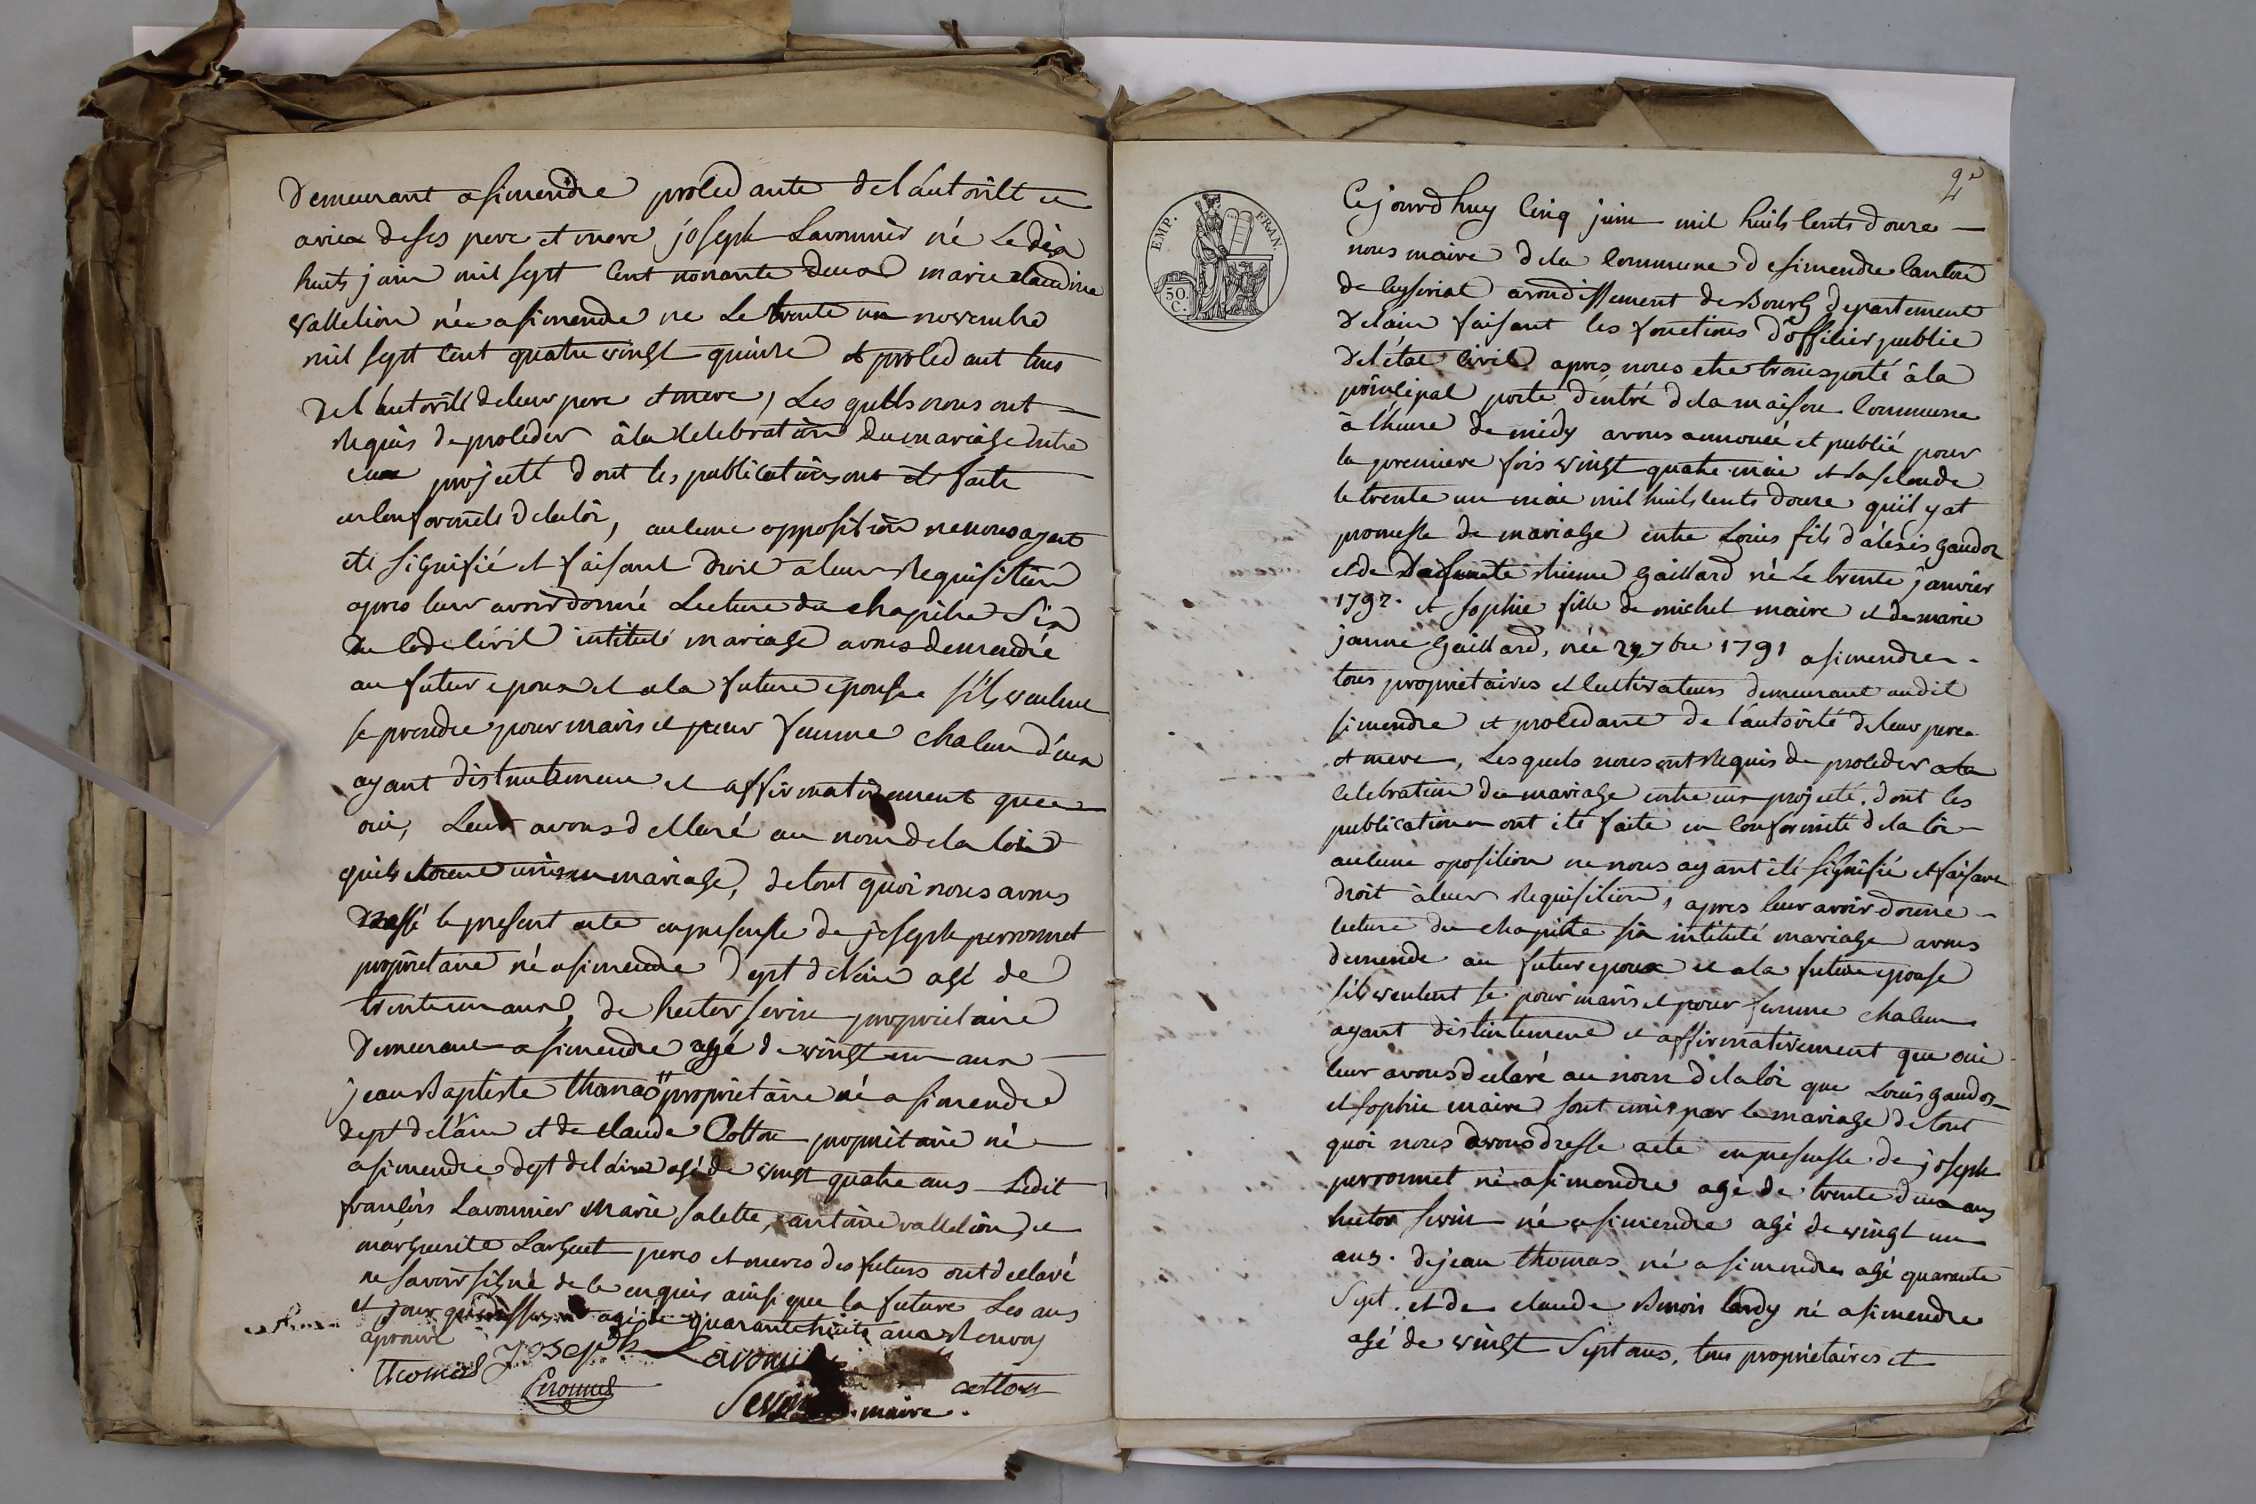 Demeurant a simendre procedante de l'autorité et
avice de ses pere et mere joseph Lavomnier né Le dix
huit juin mil sept cent nonante deux marie claudine
vallelion née a simendre ne Le trente un novembre
mil sept cent quatre vingt quinze et procedant tous
de l'autorité de leur pere et mere, Les quells nous ont
requis de proceder â la celebration du mariage entre
eux projetté dont les publications ont ete faite
en conformité de la loi, aucune opposition ne nous ayant
ete signifié et faisant droit a leur requisition
apres leur avoir donné Lecture du chapitre six
du Code civil intitulé mariage avons demendé
au futur epoux et a la future épouse s'ils veulent
se prendre pour maris et pour femme chalun d'eux
ayant distinctement et affirmativement que
oui, Leur avons dellaré au nom de la loi
quils etoient unis en mariage, de tout quoi nous avons
dressé le present acte en presensse de joseph perronnet
propriétaire né a simendre dept de l'ain agé de
trente un ans, de hector sevin proprietaire
Demeurant a simendre agé de vingt un ans
jean Baptiste thomas propriétaire né a simendre
dept de l'ain et de claude Cotton propriétaire né
a simendre dept de l'ain agé de vingt quatre ans Ledit
françois Lavomnier Marie salette, antoine vallelion et
marguerite Largent peres et meres des futurs ont declaré
ne savoir signé de ce enquis ainsi que la future Les ans
et jour agé de quarante huit ans Renvoy
aprouvé
thomas joseph Lavomnier
Peronnet Sevin maire cotton
2e
EMP. FRAN.
50.
C.
Cejourdhuy cinq juin mil huit cents douze
nous maire de la commune de simendre canton
de ceyseriat arondissement de Bourg departement
de l'ain faisant les fonctions d'officier public
de l'état civil apres nous etre transporté â la
principal porte d'entré de la maison commune
à l'heure de midy avons annoncé et publié pour
la premiere fois vingt quatre mai et la seconde
le trente un mai mil huit cents douze qu'il y at
promesse de mariage entre Louis fils d'alexis gaudoz
et de defunte etienne gaillard né Le trente janvier
1792. et sophie fille de michel maire et de marie
janne gaillard, née 29 7bre 1791 a simendre.
tous propriétaires et cultivateurs demeurant audit
simendre et procedant de l'autorité de leur pere
et mere, Les quels nous ont requis de proceder a la
celebration du mariage entre eux projeté, dont les
publications ont été faite en conformité de la loi
aucune oposition ne nous ayant été signifié et faisant
droit à leur requisition, apres leur avoir donné
lecture du chapitre six intitulé mariage avons
demendé au futur epoux et a la future epouse
s'ils veulent se pour maris et pour femme chalun
ayant distintement et affirmativement que oui
leur avons declaré au nom de la loi que Louis gaudoz
et sophie maire sont unis par le mariage de tout
quoi nous avons dresse acte en presensse de joseph
perronnet né a simendre agé de trente deux ans
hector sevin né a simendre agé de vingt un
ans. de jean thomas né a simendre agé quarante
sept. et de claude Benoit lardy né a simendre
agé de vingt sept ans, tous proprietaires et